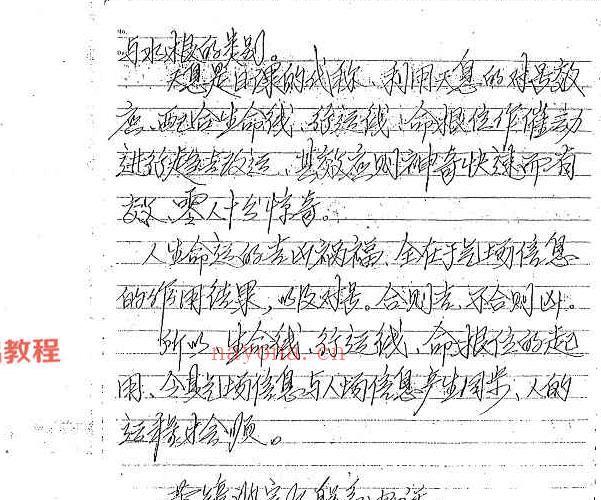 与水根的类别。
天息是日课的代称、利用天息的对号数
应、配合生命线、行运线、命根位作催动
进行趋吉改运、其效应则神奇快速而有
效、令人十分惊奇。
人生命运的吉凶祸福、全在于气场信息
的作用结果，以及对号。合则吉、不合则凶。
所以、生命线、行运线、命根位的起
教程
nayona.cn
用、令其气场信息与人场信息产生同步、人的
运程才会顺。